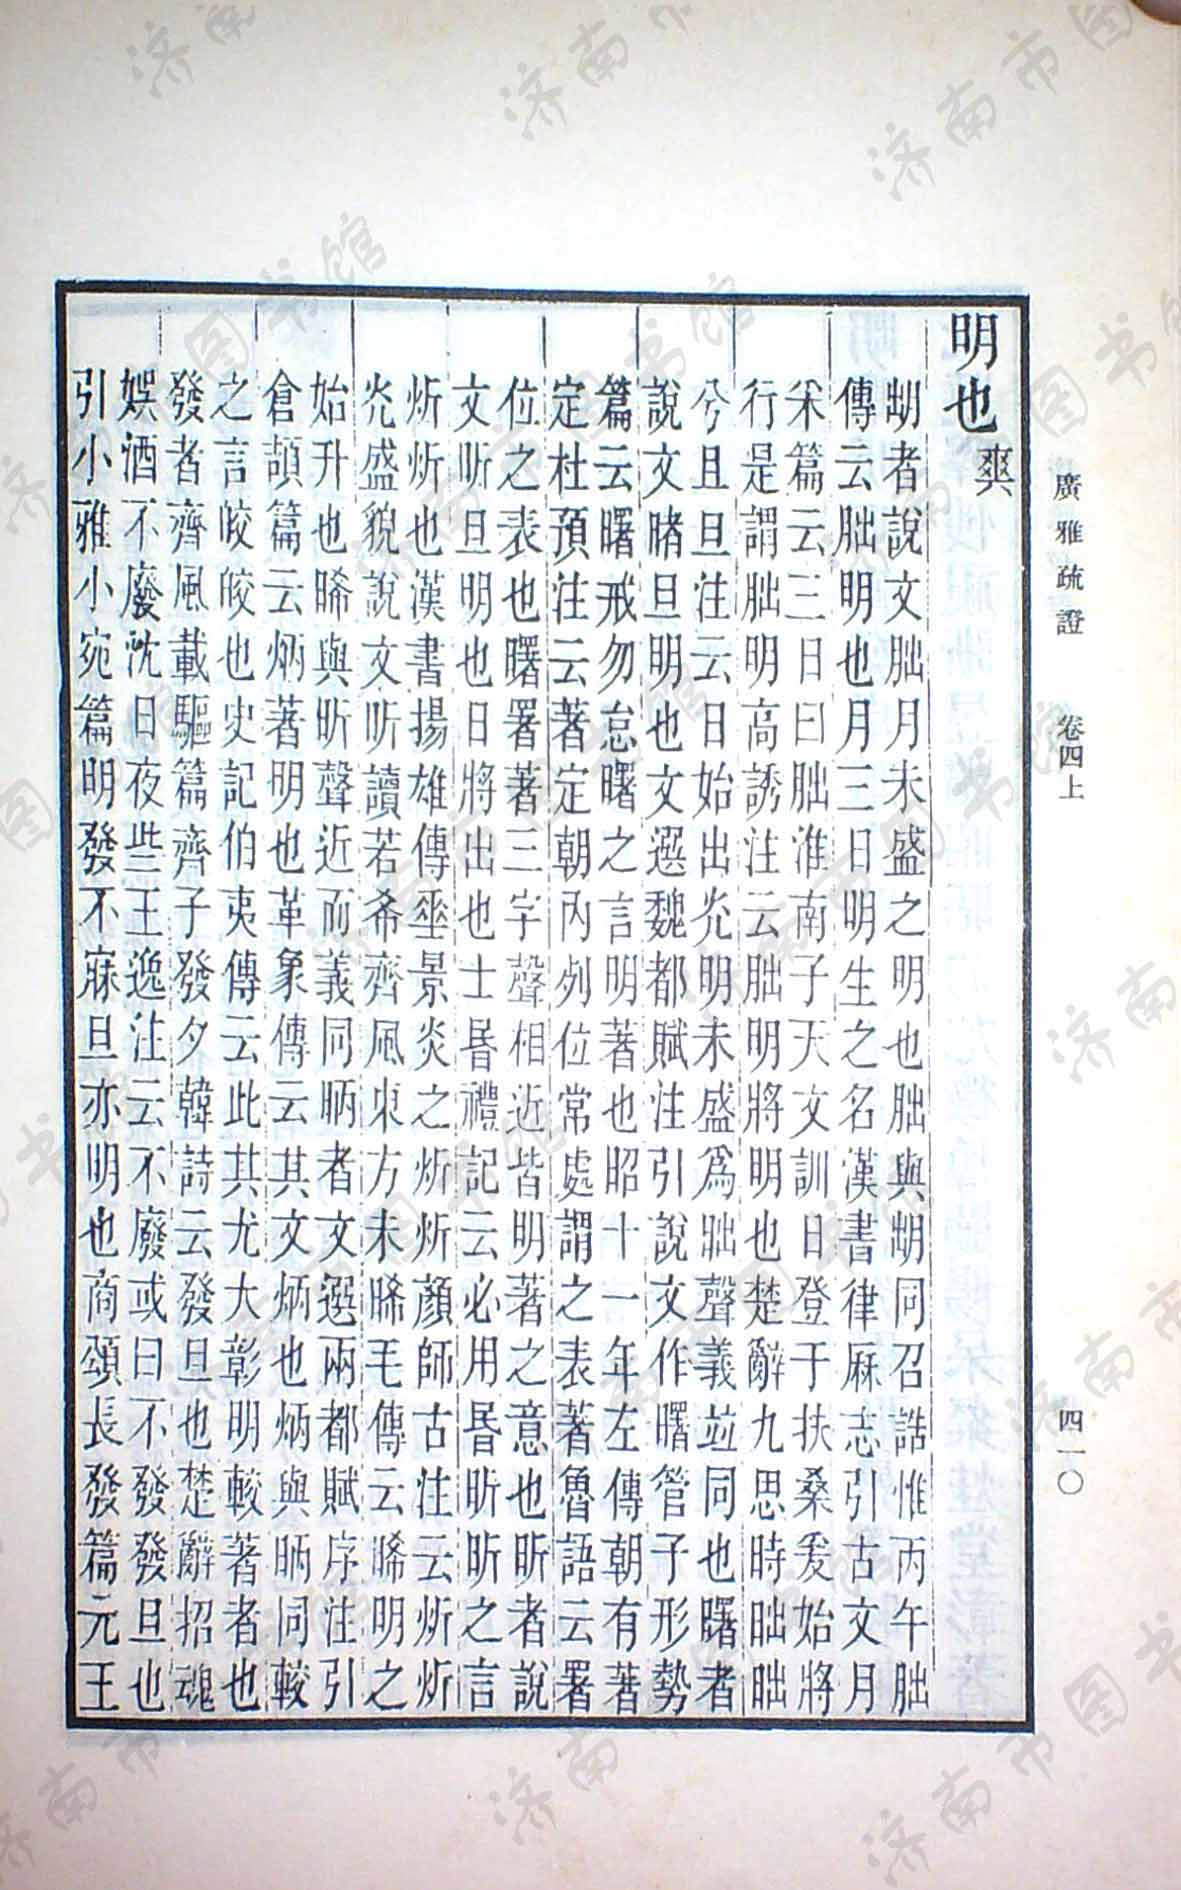 廣雅疏證　卷四上　四一〇
明也爽
者說文朏月未盛之明也朏與同召誥惟丙午朏
傳云朏明也月三日明生之名漢書律厤志引古文月
采篇云三日曰朏淮南子天文訓日登于扶桑爰始將
行是謂朏明高誘注云朏明將明也楚辭九思時昢昢
兮且旦注云日始出光明未盛爲昢聲義竝同也曙者
說文睹旦明也文選魏都賦注引說文作曙管子形勢
篇云曙戒勿怠曙之言明著也昭十一年左傳朝有著
定杜預注云著定朝內列位常處謂之表著魯語云署
位之表也曙署著三字聲相近皆明著之意也昕者說
文昕旦明也日將出也士昏禮記云必用昏昕昕之言
炘炘也漢書揚雄傳埀景炎之炘炘顏師古注云炘炘
光盛貌說文昕讀若希齊風東方未晞毛傳云晞明之
始升也晞與昕聲近而義同昞者文選兩都賦序注引
倉頡篇云炳著明也革象傳云其文炳也炳與昞同較
之言皎皎也史記伯夷傳云此其尤大彰明較著者也
發者齊風載驅篇齊子發夕韓詩云發旦也楚辭招魂
娛酒不廢沈日夜些王逸注云不廢或曰不發發旦也
引小雅小宛篇明發不寐旦亦明也商頌長發篇元王
济南市图书馆